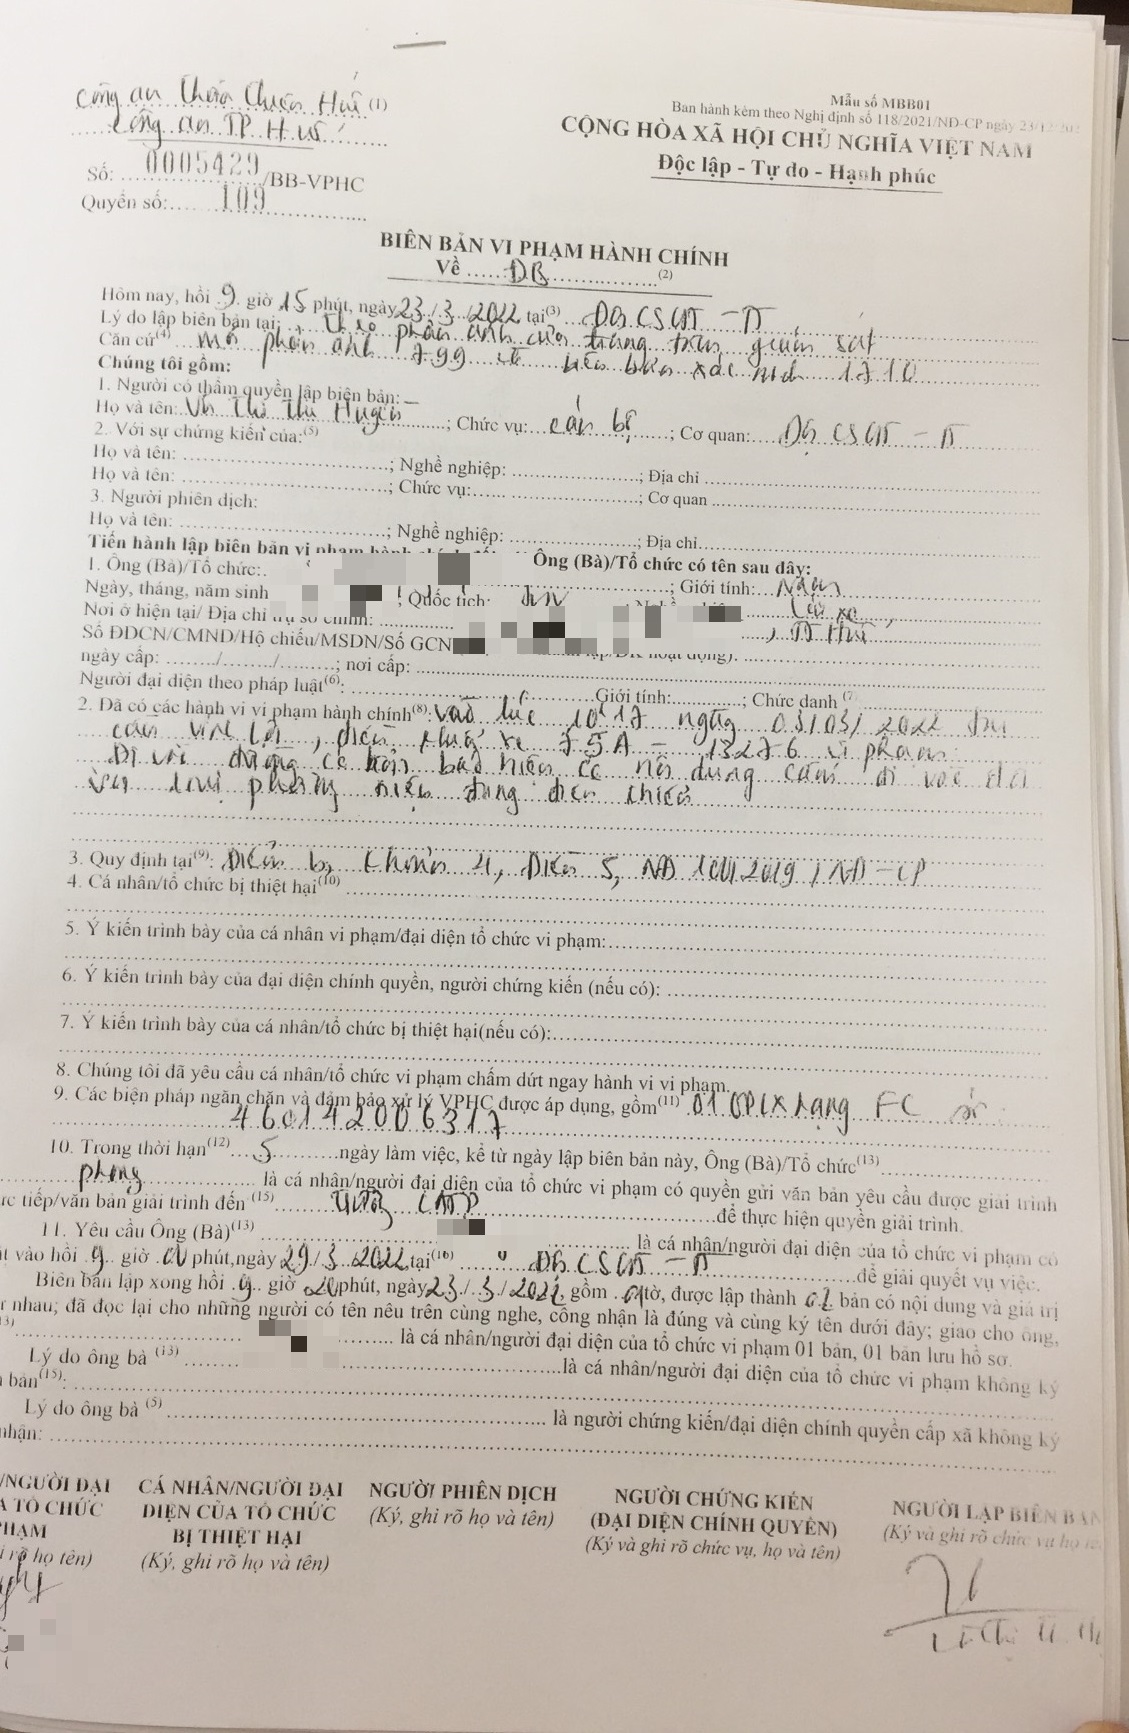 Công an Thừa Thiên Huế (1)
Công an TP Huế
Số: 0005429/BB-VPHC
Quyển số: 109
Mẫu số MBB01
Ban hành kèm theo Nghị định số 118/2021/NĐ-CP ngày 23/12/202
CỘNG HÒA XÃ HỘI CHỦ NGHĨA VIỆT NAM
Độc lập - Tự do - Hạnh phúc
BIÊN BẢN VI PHẠM HÀNH CHÍNH
Về ĐB (2)
Hôm nay, hồi 9 giờ 15 phút, ngày 23/3/2022 tại(3) Đội CSGT - TT
Lý do lập biên bản tại: phản ánh của trung tâm giám sát
Căn cứ(4) phản ánh 799 và biên bản xác minh 1710
Chúng tôi gồm:
1. Người có thẩm quyền lập biên bản:
Họ và tên: Võ Thị Thu Huyền; Chức vụ: cán bộ; Cơ quan: Đội CSGT - TT
2. Với sự chứng kiến của:(5)
Họ và tên: ; Nghề nghiệp: ; Địa chỉ
Họ và tên: ; Chức vụ: ; Cơ quan
3. Người phiên dịch:
Họ và tên: ; Nghề nghiệp: ; Địa chỉ
Tiến hành lập biên bản vi phạm hành chính Ông (Bà)/Tổ chức có tên sau đây:
1. Ông (Bà)/Tổ chức: ; Giới tính: Nam
Ngày, tháng, năm sinh ; Quốc tịch: Lái xe
Nơi ở hiện tại/ Địa chỉ trụ sở chính: , TT Huế
Số ĐDCN/CMND/Hộ chiếu/MSDN/Số GCN
ngày cấp: / / ; nơi cấp:
Người đại diện theo pháp luật(6): Giới tính: ; Chức danh (7)
2. Đã có các hành vi vi phạm hành chính(8): Vào lúc 10h17 ngày 03/03/2022 tại
điều khiển xe 75A - 13276 vi phạm:
Đi vào đường có biển báo hiệu có nội dung cấm đi vào đối
với loại phương tiện đang điều khiển
3. Quy định tại(9): Điểm b, khoản 4, Điều 5, NĐ 100/2019/NĐ-CP
4. Cá nhân/tổ chức bị thiệt hại(10)
5. Ý kiến trình bày của cá nhân vi phạm/đại diện tổ chức vi phạm:
6. Ý kiến trình bày của đại diện chính quyền, người chứng kiến (nếu có):
7. Ý kiến trình bày của cá nhân/tổ chức bị thiệt hại(nếu có):
8. Chúng tôi đã yêu cầu cá nhân/tổ chức vi phạm chấm dứt ngay hành vi vi phạm.
9. Các biện pháp ngăn chặn và đảm bảo xử lý VPHC được áp dụng, gồm(11) 01 GPLX hạng FC số:
460142006317
10. Trong thời hạn(12) 5 ngày làm việc, kể từ ngày lập biên bản này, Ông (Bà)/Tổ chức(13)
là cá nhân/người đại diện của tổ chức vi phạm có quyền gửi văn bản yêu cầu được giải trình
ực tiếp/văn bản giải trình đến (15) để thực hiện quyền giải trình.
11. Yêu cầu Ông (Bà)(13) là cá nhân/người đại diện của tổ chức vi phạm có
t vào hồi 9 giờ 00 phút,ngày 29/3/2022 tại(16) Đội CSGT - TT để giải quyết vụ việc.
Biên bản lập xong hồi 9 giờ 20 phút, ngày 23/3/2022, gồm 01 tờ, được lập thành 02 bản có nội dung và giá trị
nhau; đã đọc lại cho những người có tên nêu trên cùng nghe, công nhận là đúng và cùng ký tên dưới đây; giao cho ông,
là cá nhân/người đại diện của tổ chức vi phạm 01 bản, 01 bản lưu hồ sơ.
Lý do ông bà (13) là cá nhân/người đại diện của tổ chức vi phạm không ký
bản(15):
Lý do ông bà (5) là người chứng kiến/đại diện chính quyền cấp xã không ký
nhận:
/NGƯỜI ĐẠI
A TỔ CHỨC
PHẠM
i rõ họ tên)
CÁ NHÂN/NGƯỜI ĐẠI
DIỆN CỦA TỔ CHỨC
BỊ THIỆT HẠI
(Ký, ghi rõ họ và tên)
NGƯỜI PHIÊN DỊCH
(Ký, ghi rõ họ và tên)
NGƯỜI CHỨNG KIẾN
(ĐẠI DIỆN CHÍNH QUYỀN)
(Ký và ghi rõ chức vụ, họ và tên)
NGƯỜI LẬP BIÊN BẢN
(Ký và ghi rõ chức vụ họ